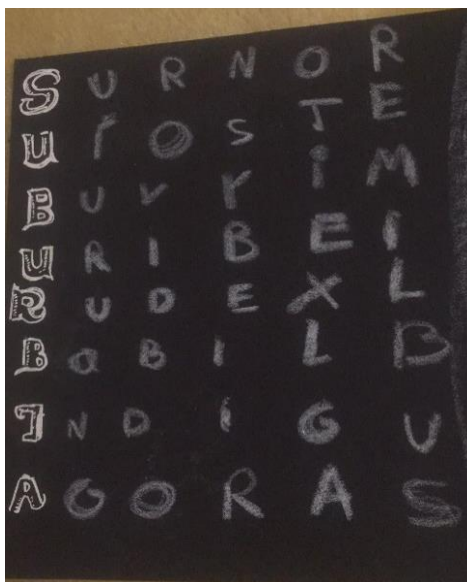 S U R N O R
U r O S T E
B U v r i M
U R I B E I
R U D E X L
B a B I L B
I N D I G U
A G O R A S